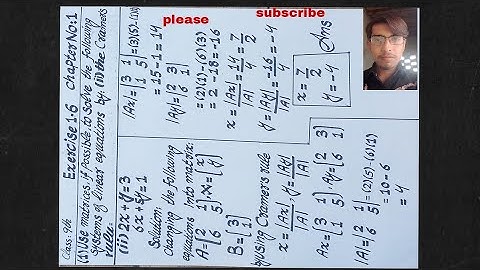 please
subscribe
Class: 9th
Exercise 1.6 Chapter No:1
(1) Use matrices, if possible to solve the following
systems of linear equations by: (ii) the Cramers
rule.
(ii) 2x+y=3
6x+5y=1
Solution:
Changing the following
equations into matrix:
A=[2 1
6 5], X=[x
y]
B=[3
1]
by using Cramer's rule
x=|Ax|/|A|, y=|Ay|/|A|
Ax=[3 1
1 5], Ay=[2 3
6 1]
|A|=|2 1
6 5|=(2)(5)-(6)(1)
=10-6
=4
|Ax|=|3 1
1 5|=(3)(5)-(1)(1)
=15-1=14
|Ay|=|2 3
6 1|
=(2)(1)-(6)(3)
=2-18=-16
x=|Ax|/|A|=14/4=7/2
y=|Ay|/|A|=-16/4=-4
x=7/2
y=-4
Ans